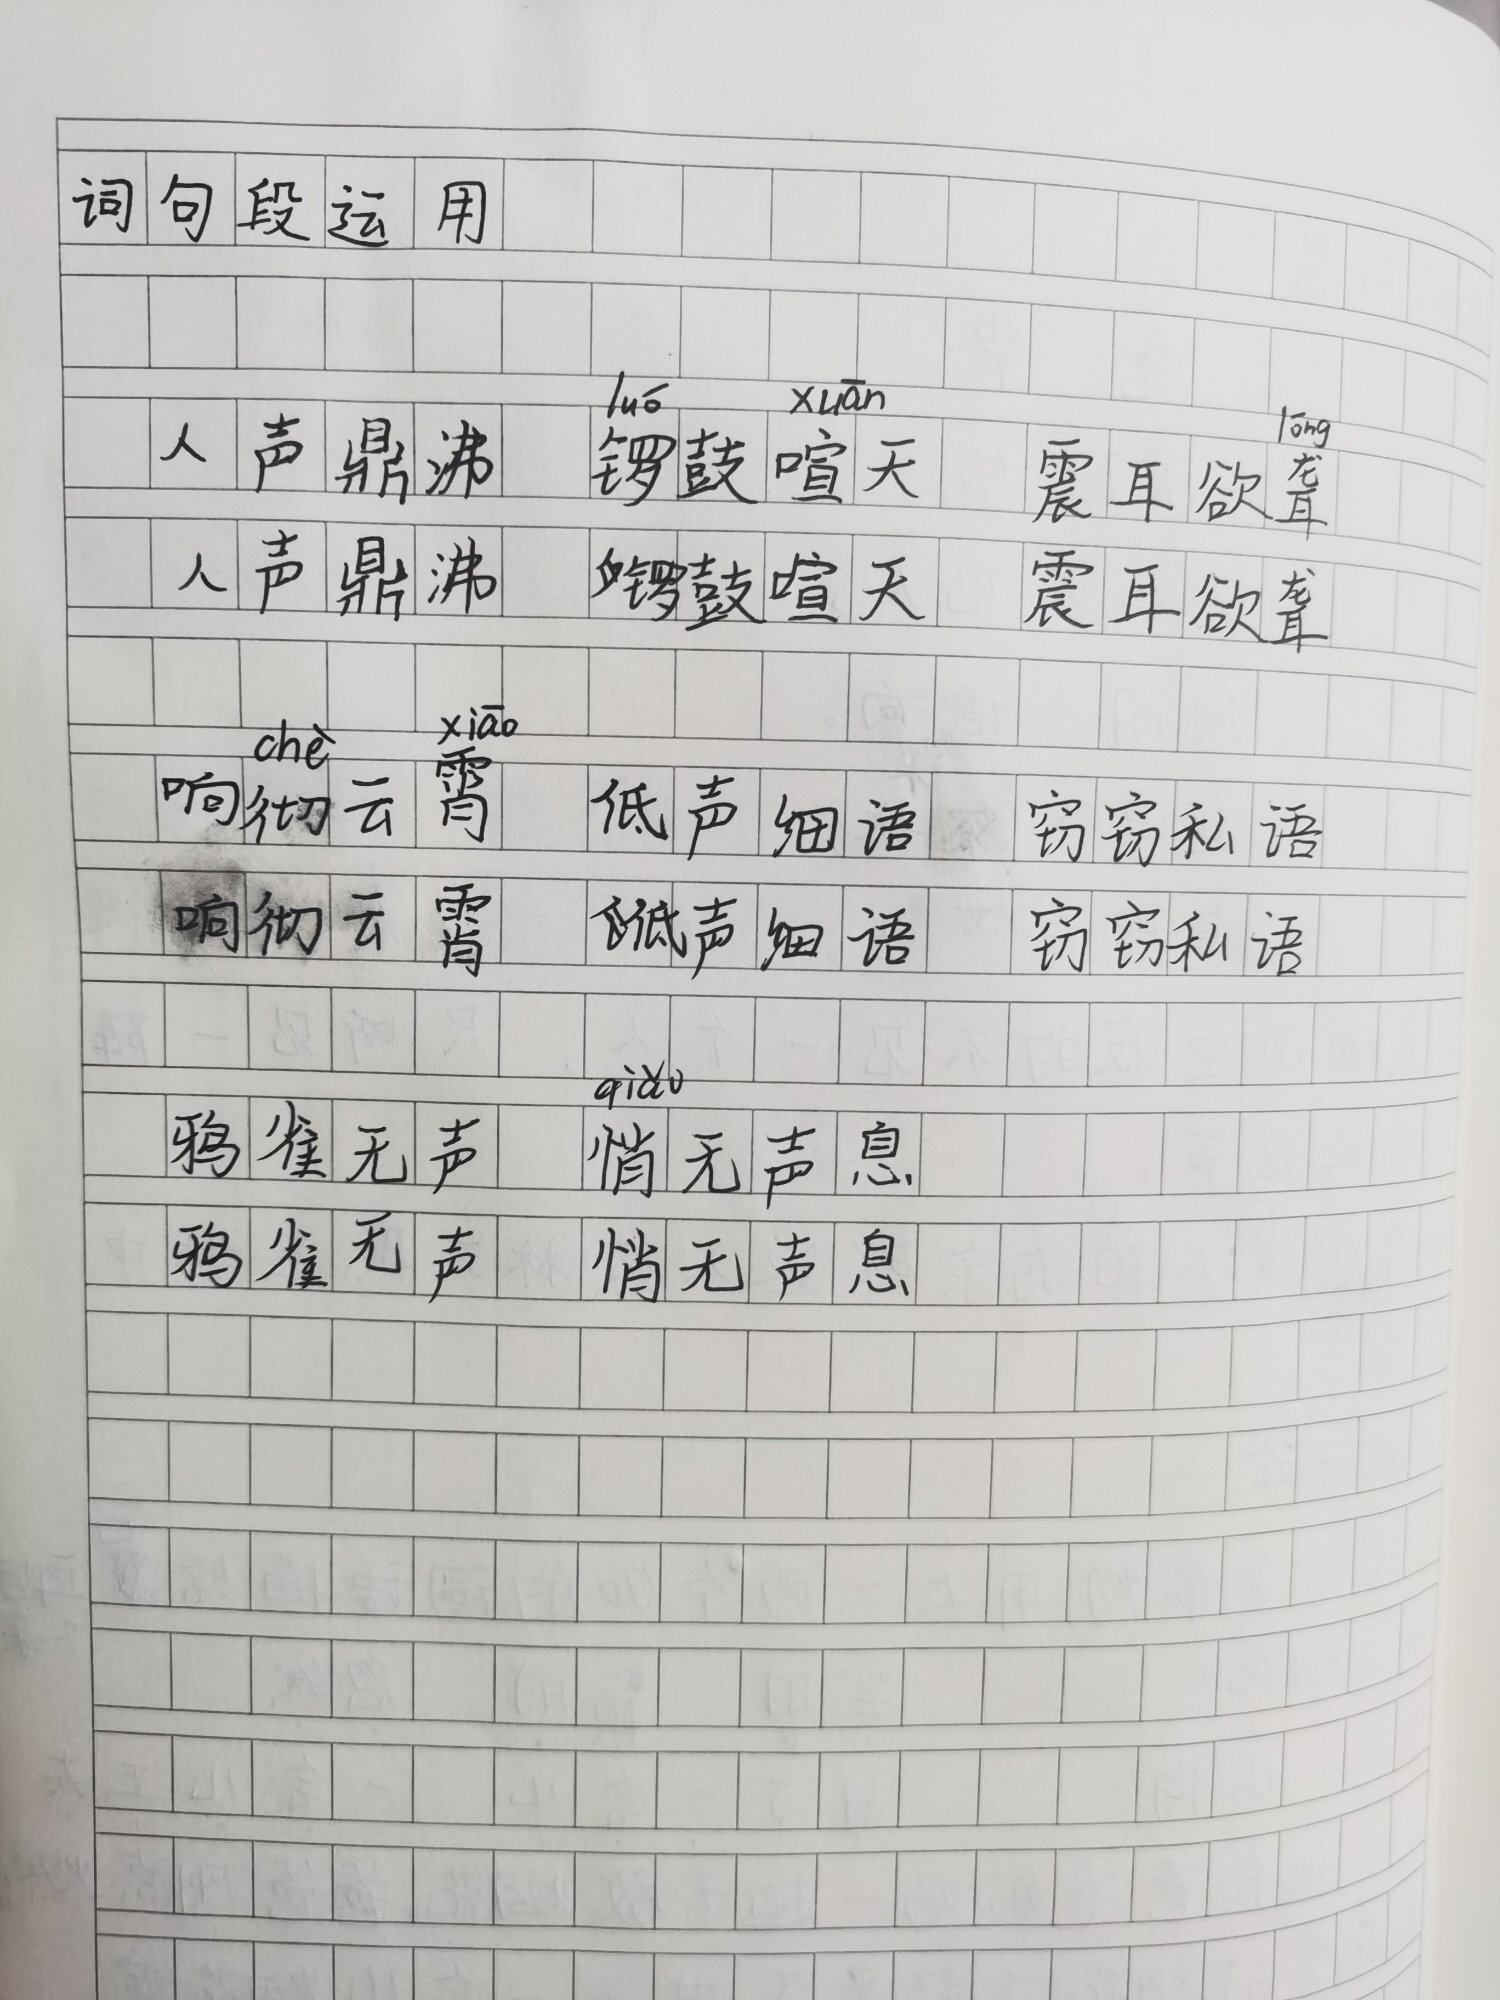 词句段运用
luó xuān lóng
人声鼎沸 锣鼓喧天 震耳欲聋
人声鼎沸 锣鼓喧天 震耳欲聋
chè xiāo
响彻云霄 低声细语 窃窃私语
响彻云霄 低声细语 窃窃私语
qiǎo
鸦雀无声 悄无声息
鸦雀无声 悄无声息